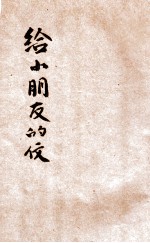 给小朋友的佼